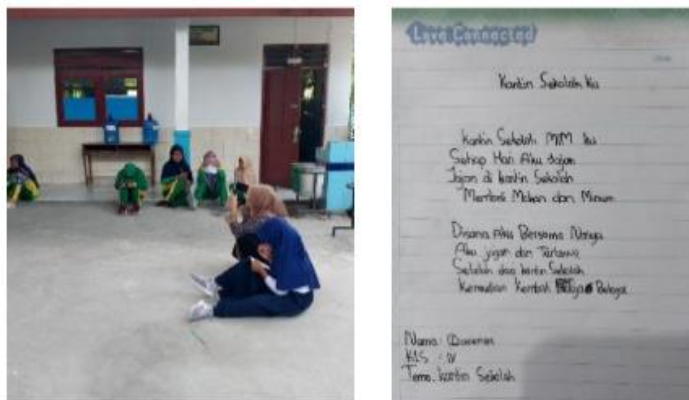 Love Connected
Kantin Sekolah Ku
Kantin Sekolah MIM ku
Setiap Hari Aku Jajan
Jajan di kantin Sekolah
Membeli Makan dan Minum
Disana Aku Bersama
Aku dan Tertawa
Setelah dari kantin Sekolah
Kemudian Kembali Belajar
Nama:
KLS : IV
Tema. kantin Sekolah